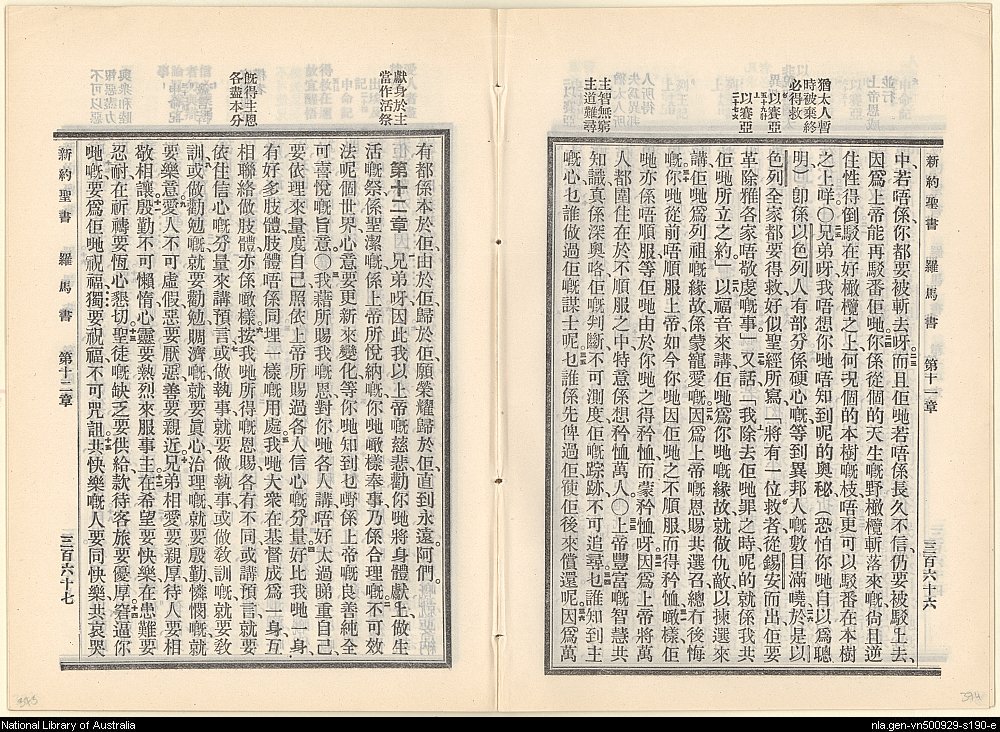 猶太人暫
時被棄終
必得救
以賽亞
五十九廿
以賽亞
二十七九
主智無窮
主道難尋
新約聖書 羅馬書 第十一章 三百六十六
中、若唔係、你都要被斬去呀、而且佢哋若唔係長久不信、仍要被駁上去、
因爲上帝能再駁番佢哋、你係從個的天生嘅野橄欖斬落來嘅、尙且逆
住性得倒駁在好橄欖之上、何况個的本樹嘅枝、唔更可以駁番在本樹
之上咩、〇兄弟呀、我唔想你哋唔知到呢的奧秘、(恐怕你哋自以爲聰
明)卽係以色列人有部分係硬心嘅、等到異邦人嘅數目滿嘵、於是以
色列全家都要得救、好似聖經所寫、「將有一位救者、從錫安而出、佢要
革除雅各家唔敬虔嘅事」又話、「我除去佢哋罪之時、呢的就係我共
佢哋所立之約」以福音來講、佢哋爲你哋嘅緣故就做仇敵、以揀選來
講、佢哋爲列祖嘅緣故、係蒙寵愛嘅、因爲上帝嘅恩賜共選召、總冇後悔
嘅、你哋從前唔順服上帝、如今你哋因佢哋之不順服、而得矜恤嘅、噉樣佢
哋亦係唔順服、等佢哋由於你哋之得矜恤、而蒙矜恤呀、因爲上帝將萬
人都圍住在於不順服之中、特意係想矜恤萬人、〇上帝豐富嘅智慧共
知識、真係深奧咯、佢嘅判斷不可測度、佢嘅踪跡不可追尋、乜誰知到主
嘅心、乜誰做過佢嘅謀士呢、乜誰係先俾過佢、使佢後來償還呢、因爲萬
獻身於主
當作活祭
旣得主恩
各盡本分
有都係本於佢、由於佢、歸於佢、願榮耀歸於佢、直到永遠、阿們。
第十二章 兄弟呀、因此我以上帝嘅慈悲勸你哋、將身體獻上、做生
活嘅祭、係聖潔嘅、係上帝所悅納嘅、你哋噉樣奉事、乃係合理嘅、不可效
法呢個世界、心意要更新來變化、等你哋知到乜嘢係上帝嘅良善純全
可喜悅嘅旨意、〇我藉所賜我嘅恩、對你哋各人講、唔好太過睇重自己、
要依理來量度自己、照依上帝所賜過各人信心嘅分量、好比我哋一身
有好多肢體、肢體唔係同埋一樣嘅用處、我哋大衆在基督成爲一身、互
相聯絡做肢體、亦係噉樣、按我哋所得嘅恩賜各有不同、或講預言、就要
依住信心嘅分量來講預言、或做執事、就要做執事、或做敎訓嘅、就要敎
訓、或做勸勉嘅、就要勸勉、賙濟嘅、就要眞心、治理嘅、就要殷勤、憐憫嘅、就
要樂意、愛人不可虛假、惡要厭惡、善要親近、兄弟相愛、要親厚、待人要相
敬相讓、殷勤不可懶惰、心靈要熱烈、來服事主、在希望要快樂、在患難要
忍耐、在祈禱要恆心懇切、聖徒嘅缺乏要供給、款待客旅要優厚、窘逼你
哋嘅、要爲佢哋祝福、獨要祝福、不可咒詛、共快樂嘅人要同快樂、共哀哭
新約聖書 羅馬書 第十二章 三百六十七
National Library of Australia
nla.gen-vn500929-s190-e